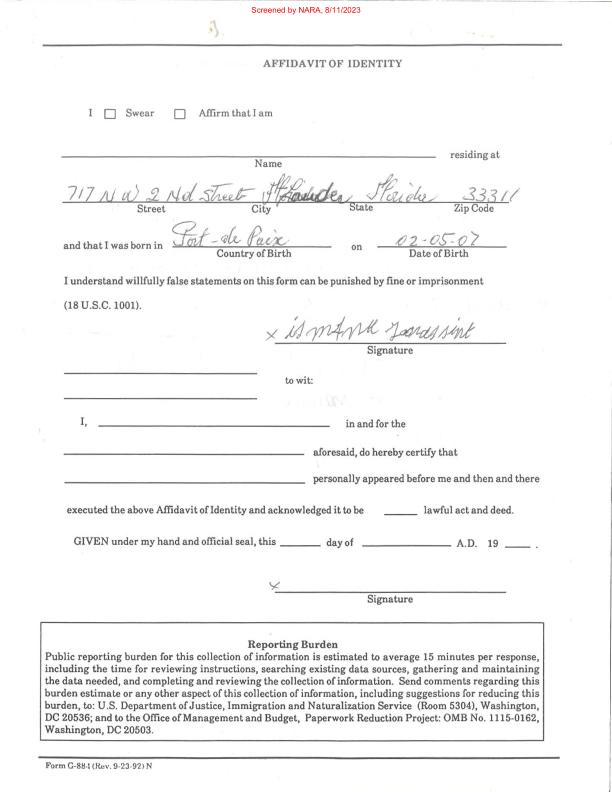 Screened by NARA, 8/11/2023
AFFIDAVIT OF IDENTITY
I ☐ Swear ☐ Affirm that I am
residing at
Name
717 N W 2 Nd Street Ft Lauder Floride 33311
Street City State Zip Code
and that I was born in Port-de Paix on 02-05-07
Country of Birth Date of Birth
I understand willfully false statements on this form can be punished by fine or imprisonment
(18 U.S.C. 1001).
x
Signature
to wit:
I, in and for the
aforesaid, do hereby certify that
personally appeared before me and then and there
executed the above Affidavit of Identity and acknowledged it to be lawful act and deed.
GIVEN under my hand and official seal, this day of A.D. 19 .
x
Signature
Reporting Burden
Public reporting burden for this collection of information is estimated to average 15 minutes per response,
including the time for reviewing instructions, searching existing data sources, gathering and maintaining
the data needed, and completing and reviewing the collection of information. Send comments regarding this
burden estimate or any other aspect of this collection of information, including suggestions for reducing this
burden, to: U.S. Department of Justice, Immigration and Naturalization Service (Room 5304), Washington,
DC 20536; and to the Office of Management and Budget, Paperwork Reduction Project: OMB No. 1115-0162,
Washington, DC 20503.
Form G-884 (Rev. 9-23-92) N